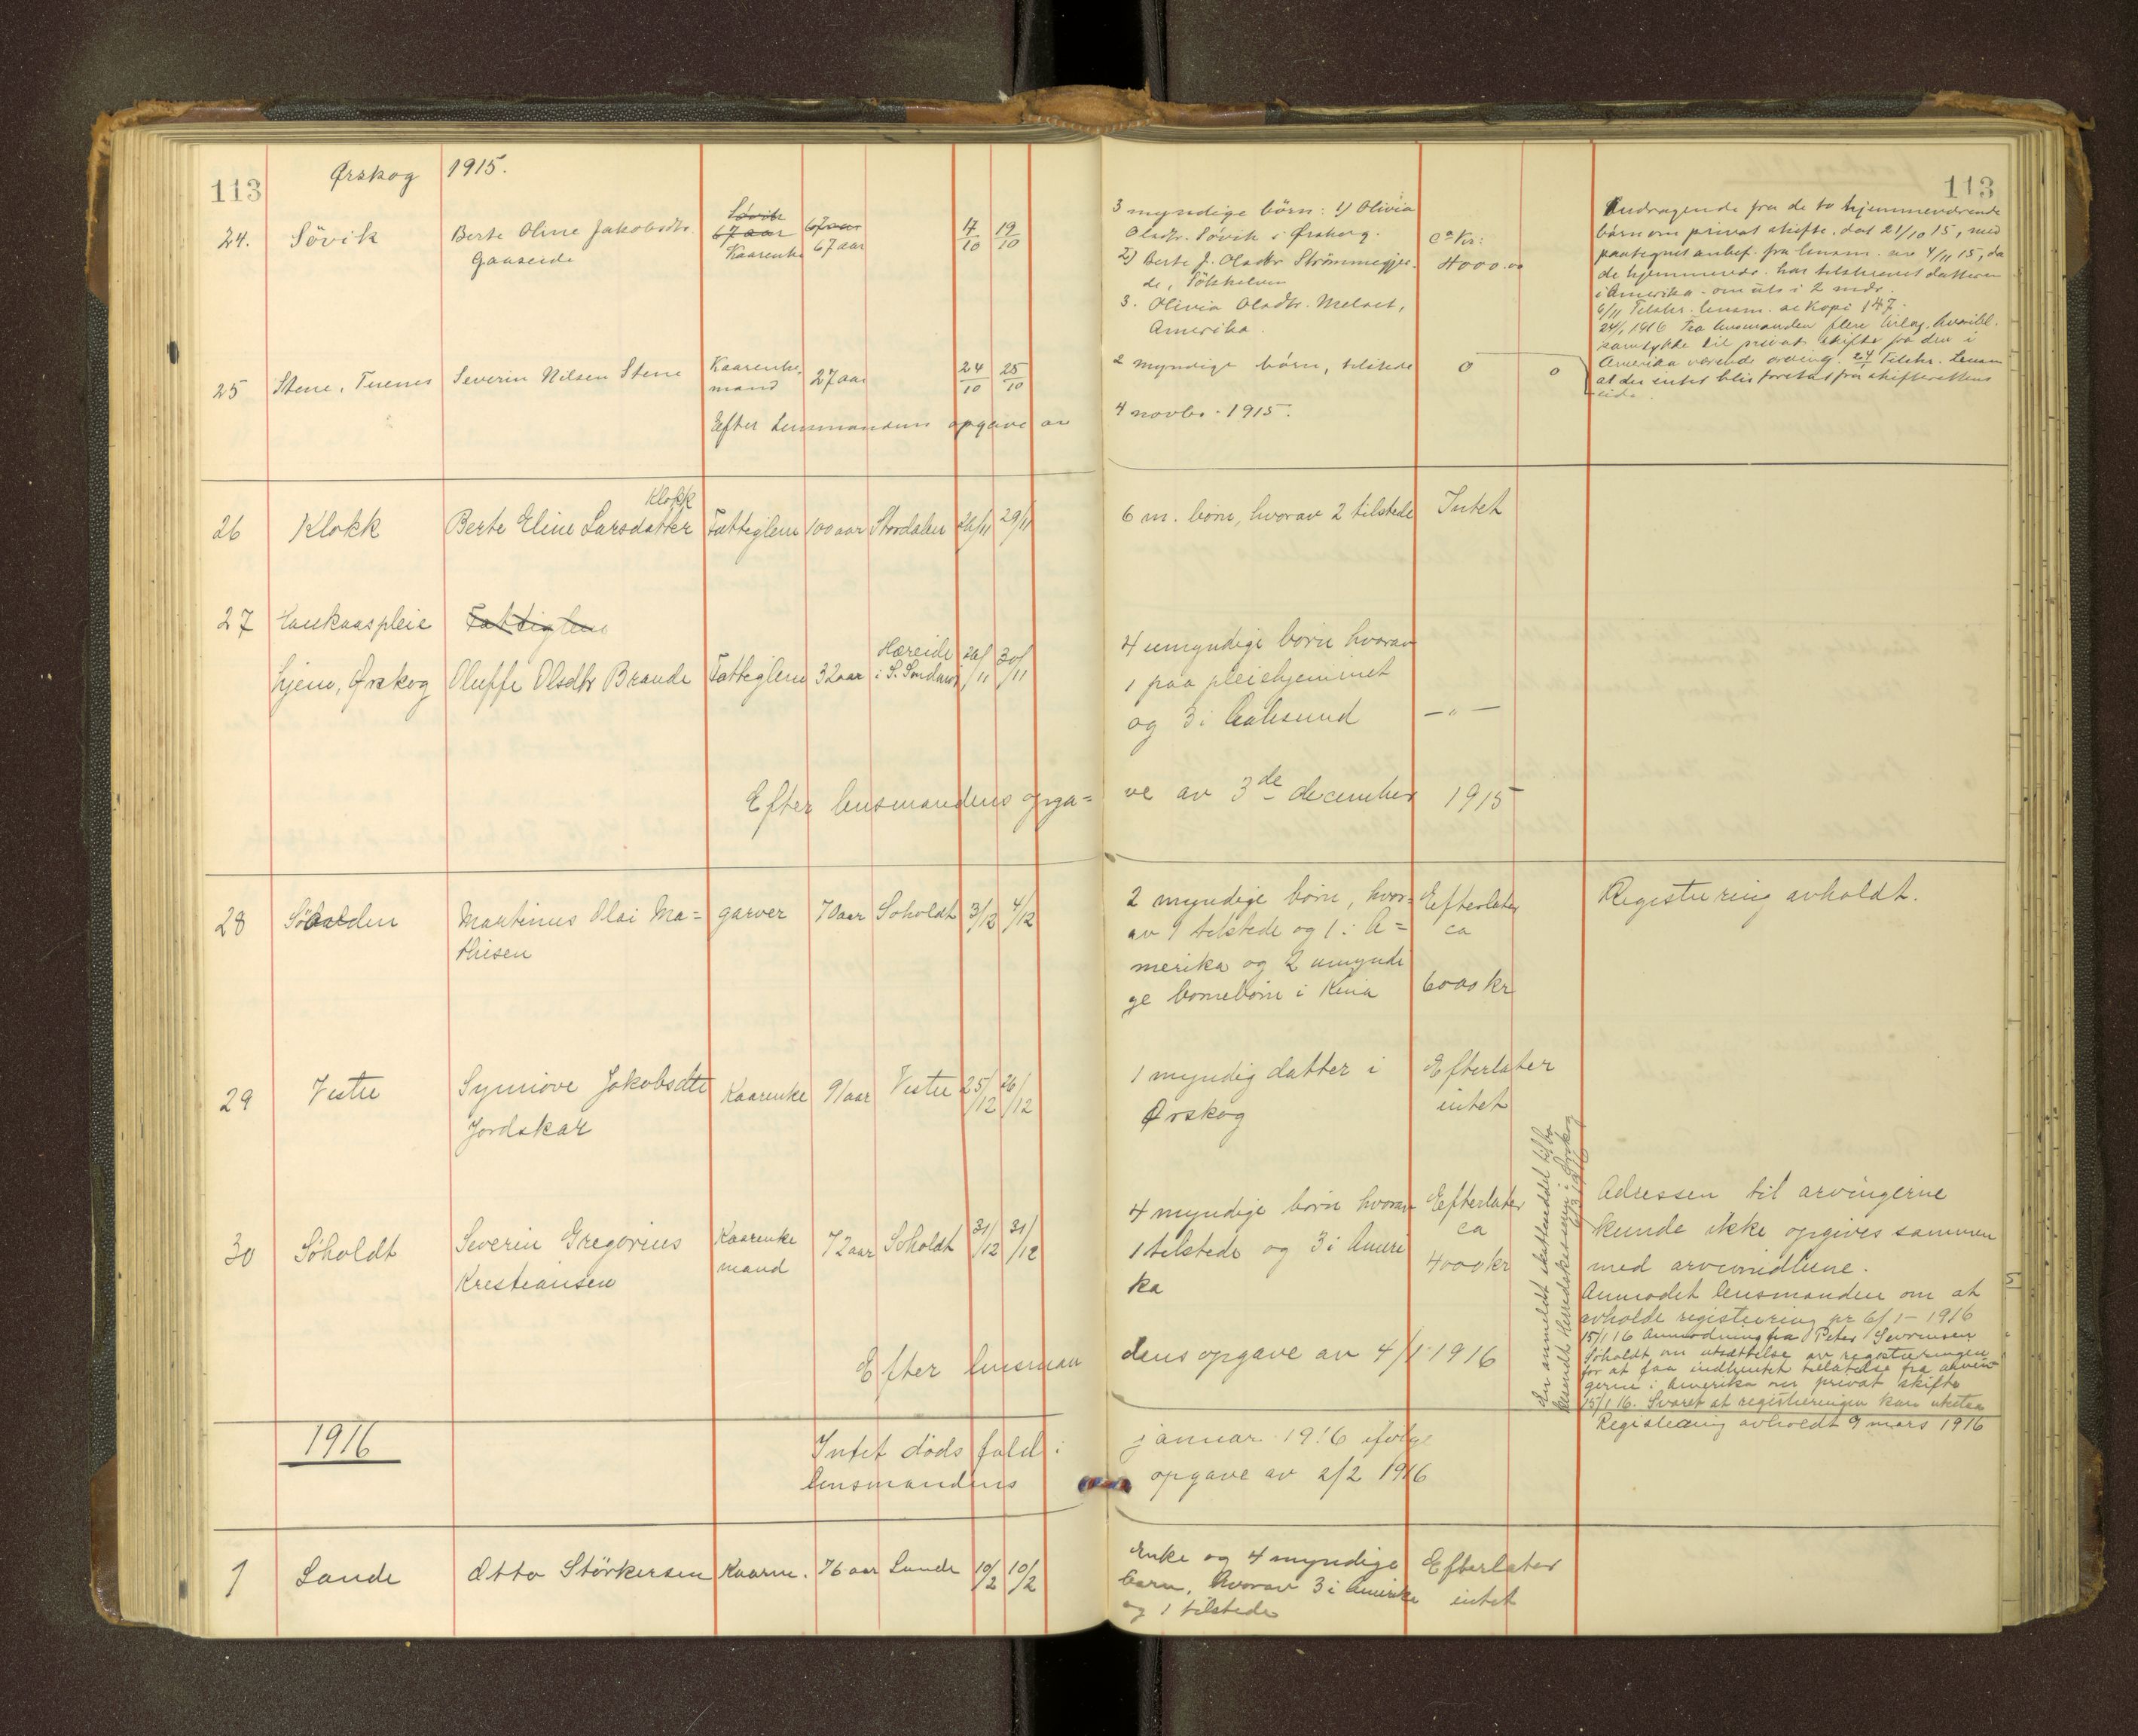 113
Ørskog 1915.
113
24. Sövik Berte Oline Jakobsdtr. Sövik 67 aar 17/10 19/10
Gaaseide 67 aar Kaarenke 67 aar
3 myndige börn: 1) Olivia
Oladtr. Sövik i Ørskog.
2) Berte J. Oladtr Strömmegjer-
de,
3. Olivia Oladtr. Melset,
Amerika.
ca Kr:
4000.00
Andragende fra de to hjemmeværende
börn om privat skifte. dat 21/10 15, med
paategnet anbef. fra lensm. av 4/11 15, da
de hjemmeværende har tilskrevet datteren
i Amerika - om uts i 2 mdr.
6/11 Tilskr. lensm. se Kopi 147.
24/1 1916 Fra lensmanden flere bilag, hvoribl.
samtykke til privat skifte fra den i
Amerika værende arving. 24/1 Tilskr. Lensm
at der intet blir foretat fra skifterettens
side.
25 Stene, Tuenes Severin Nilsen Stene Kaarenke- 27 aar 24/10 25/10
mand
2 myndige börn, tilstede 0 0
Efter Lensmandens opgave av 4 novbr. 1915.
26 Klokk Berte Eline Larsdatter Klokk Fattiglem 100 aar Stordalen 26/11 29/11
6 m. börn, hvorav 2 tilstede Intet
27 pleie Fattiglem
hjem, Ørskog Oluffe Olsdtr Brande Fattiglem 32 aar Hareide i S. Søndmør 26/11 30/11
4 umyndige börn hvorav
1 paa pleiehjemmet
og 3 i Aalesund —"—
Efter lensmandens opga=ve av 3de december 1915
28 Martinus Olai Ma= garver 70 aar Soholdt 3/12 4/12
thisen
2 myndige börn, hvor=
av 1 tilstede og 1 i A=
merika og 2 umyndi
ge barnebörn i Kina
Efterlater
ca
6000 kr
Registrering avholdt.
29 Vestre Synnöve Jakobsdtr Kaarenke 91 aar Vestre 25/12 26/12
Jordskar
1 myndig datter i
Ørskog
Efterlater
intet
30 Söholdt Severin Gregorius Kaarenke 72 aar Soholdt 31/12 31/12
Kristiansen mand
4 myndige börn hvorav
1 tilstede og 3 i Ameri
ka
Efterlater
ca
4000 kr
Adressen til arvingerne
kunde ikke opgives sammen
med arvemidlene.
Anmodet lensmanden om at
avholde registrering pr 6/1-1916
15/1 16 Anmodning fra Peter Severinsen
Söholdt om utsættelse av registreringen
for at faa indhentet tilladelse fra arvin=
gerne i Amerika om privat skifte
15/1 16. Svaret at registreringen kan utstaa
Registrering avholdt 9 mars 1916
Herredskassereren i Ørskog
6/3 1916
Efter lensman dens opgave av 4/1 1916
1916
Intet dödsfald i januar 1916 ifölge
lensmandens opgave av 2/2 1916
1 Lande Otto Störkersen Kaarm. 76 aar Lande 10/2 10/2
Enke og 4 myndige
barn, hvorav 3 i Amerika
og 1 tilstede
Efterlater
intet